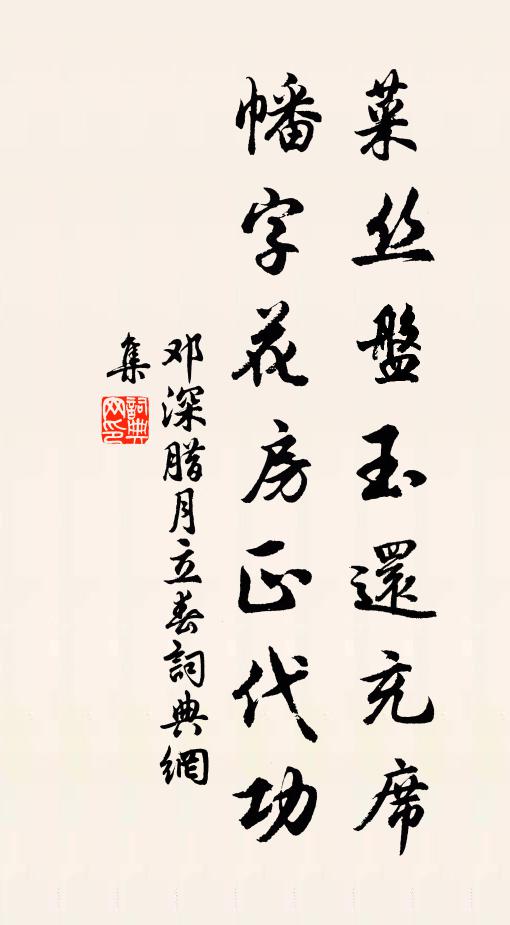 菜丝盤玉還充席
幡字花房正代功
邓深腊月立春詞典網
集
詞典
网印